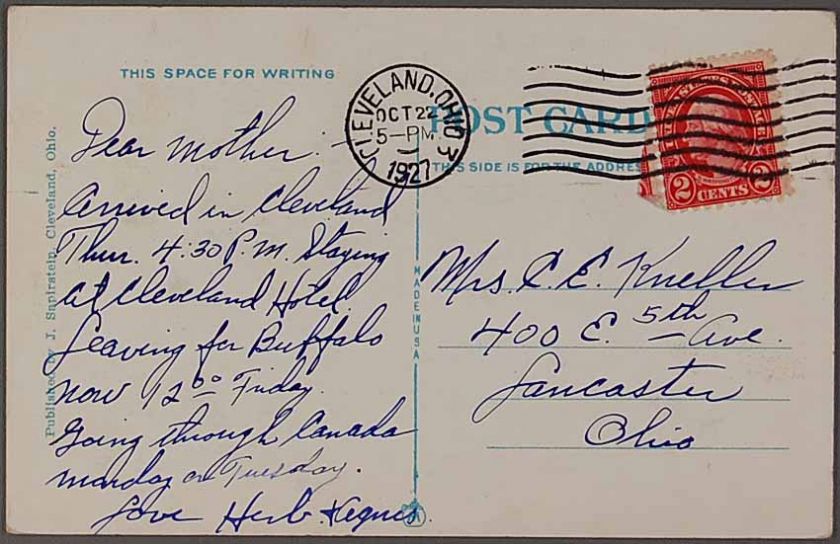 THIS SPACE FOR WRITING
Dear Mother:-
Arrived in Cleveland
Thur. 4:30 P.M. Staying
at Cleveland Hotel.
Leaving for Buffalo
now 12⁰⁰ Friday.
Going through Canada
Monday or Tuesday.
Love Herb + Agnes.
Published by J. Sapirstein, Cleveland, Ohio.
CLEVELAND, OHIO
OCT 22
5-PM
1927
3
POST CARD
THIS SIDE IS FOR THE ADDRESS
2 CENTS 2
MADE IN USA
Mrs. C. E. Kneller
400 E. 5th Ave.
Lancaster
Ohio